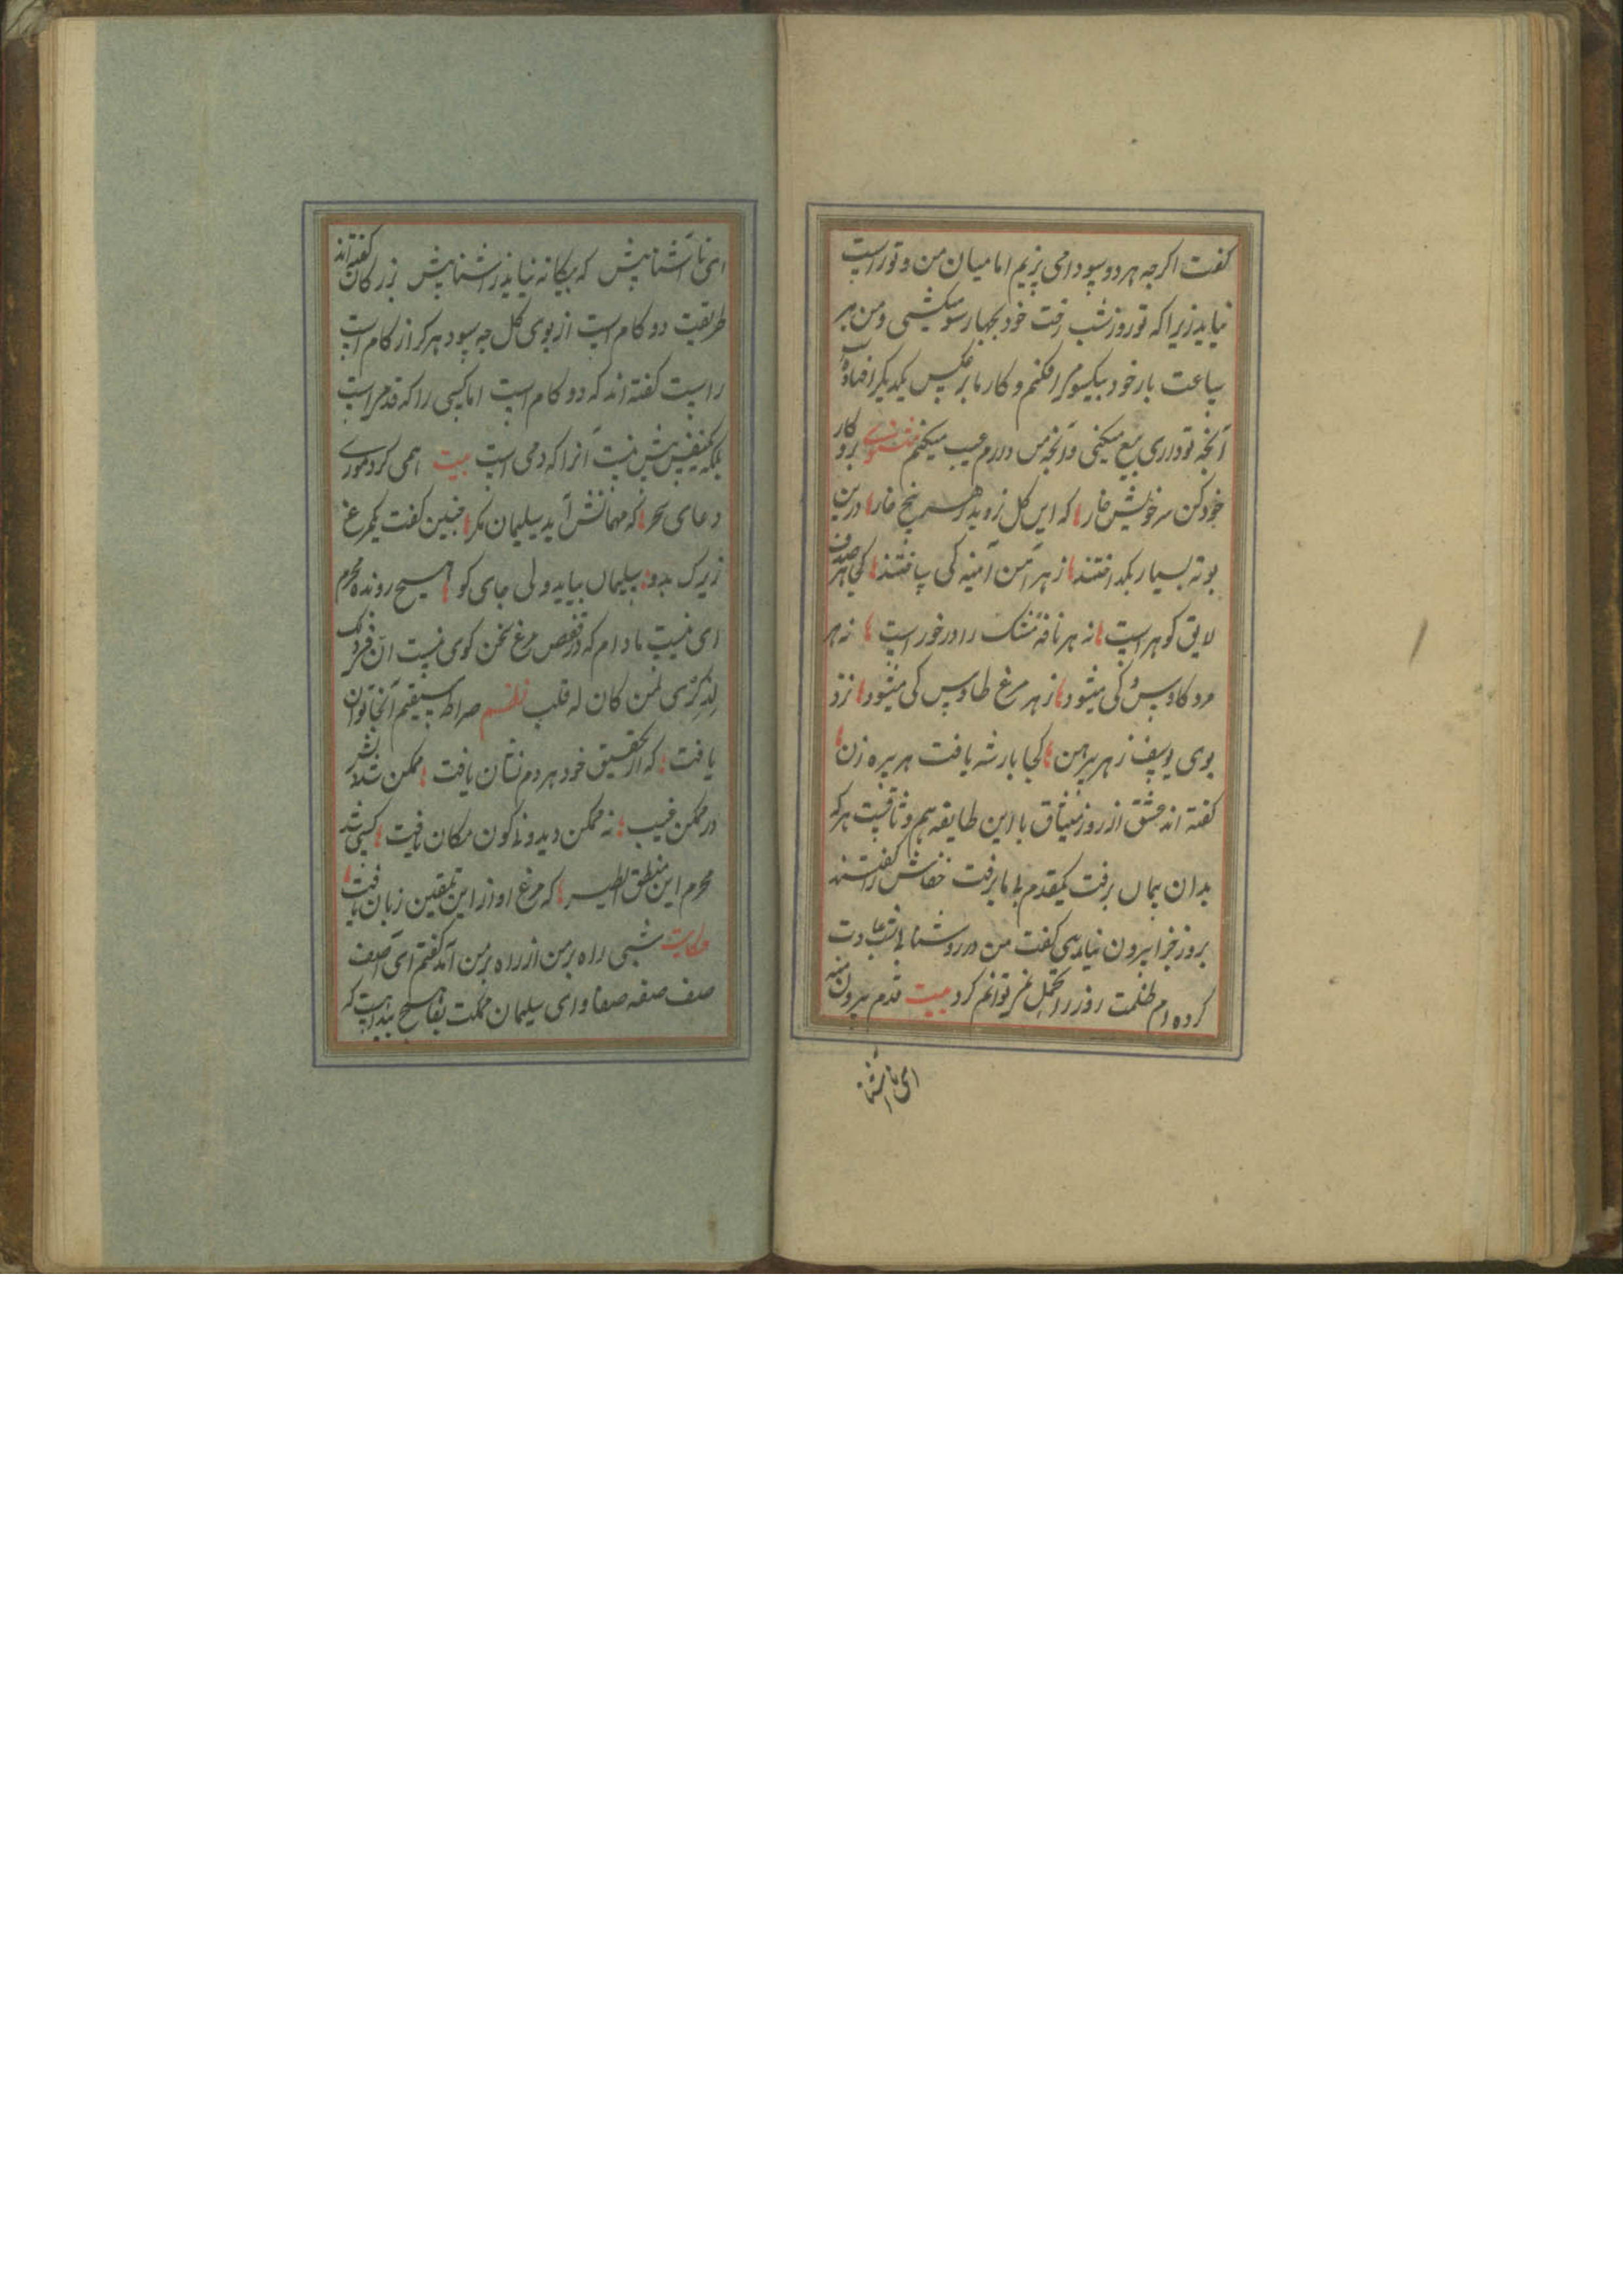 کفت اکرچه هر دو سودا می پزیم اما میان من و تو راست
نیاید زیرا که تو روز و شب رخت خود بچهار سو میکشی و من هر
ساعت بار خود بیکسو می افکنم و کار ما بر عکس یکدیکر افتاده است
آنچه تو داری بیع میکنی و آنچه من دارم عیب میکنم مثنوی برو کار
خود کن سر خویش خار که این کل نروید ز هر پنج خار درین
بوته بسیار بکداختند ز هر آهن آینه کی ساختند کجا هر صدف
لایق کوهر است نه هر نافه مشک را در خور است نه هر
مرد کاوس کی میشود ز هر مرغ طاوس کی میشود نزد
بوی یوسف ز هر پیرهن کجا بار شه یافت هر پیره زن
کفته اند عشق از روز میثاق با این طایفه هم وثاقست هر که
بدان پیمان برفت یکقدم با ما برفت خفاش را کفتند
بروز چرا بیرون نیایی کفت من در روشنایی شب عادت
کرده ام ظلمت روز را تحمل نمی توانم کرد بیت قدم بیرون منه
ای ناآشنا
ای ناآشنا پیش که بیکانه نیاید ز آشنا پیش بزرکان کفته اند
طریقت دو کام است از بوی کل چه سود هر که را زکام است
راست کفته اند که دو کام است اما کسی را که قدم است
بلکه یکنفس بیش نیست آنرا که دمی است بیت همی کرد موری
دعای سحر که مهمانش آید سلیمان مکر چنین کفت یکمرغ
زیرک بدو سلیمان بیاید ولی جای کو هیچ رونده محرم
ای نیست مادام که در قفص مرغ سخن کوی نیست ان فی ذلک
لذکری لمن کان له قلب نظم صراط مستقیم آنجا توان
یافت که از تحقیق خود هر دم نشان یافت ممکن شد بشر
در ممکن غیب نه ممکن دید و نه کون مکان یافت کسی شد
محرم این منطق الطیر که مرغ او از این تلقین زبان یافت
حکایت شبی راه بر من از راه بر من آمد کفتم ای آصف
صف صفه صفا و ای سلیمان مملکت بقا هیچ پیداست که